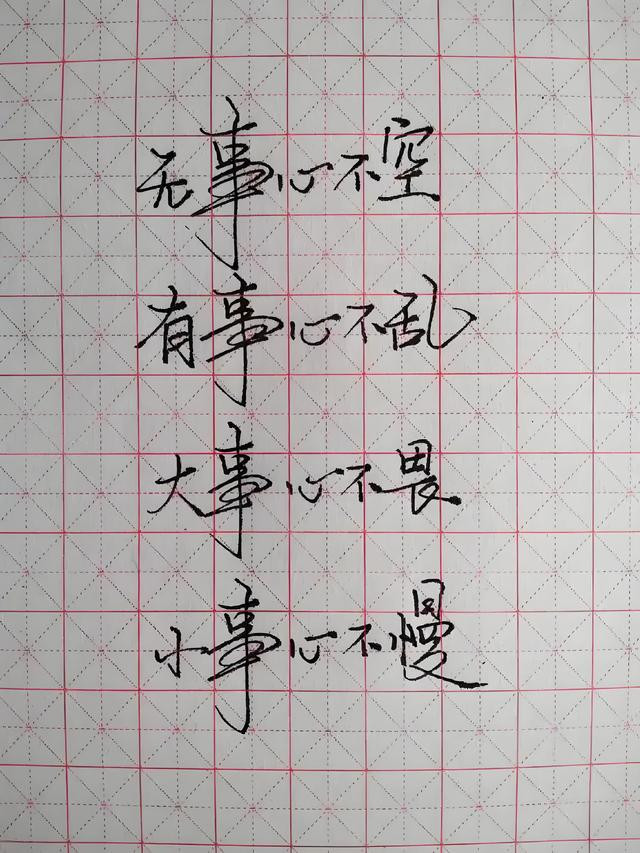 无事心不空
有事心不乱
大事心不畏
小事心不慢